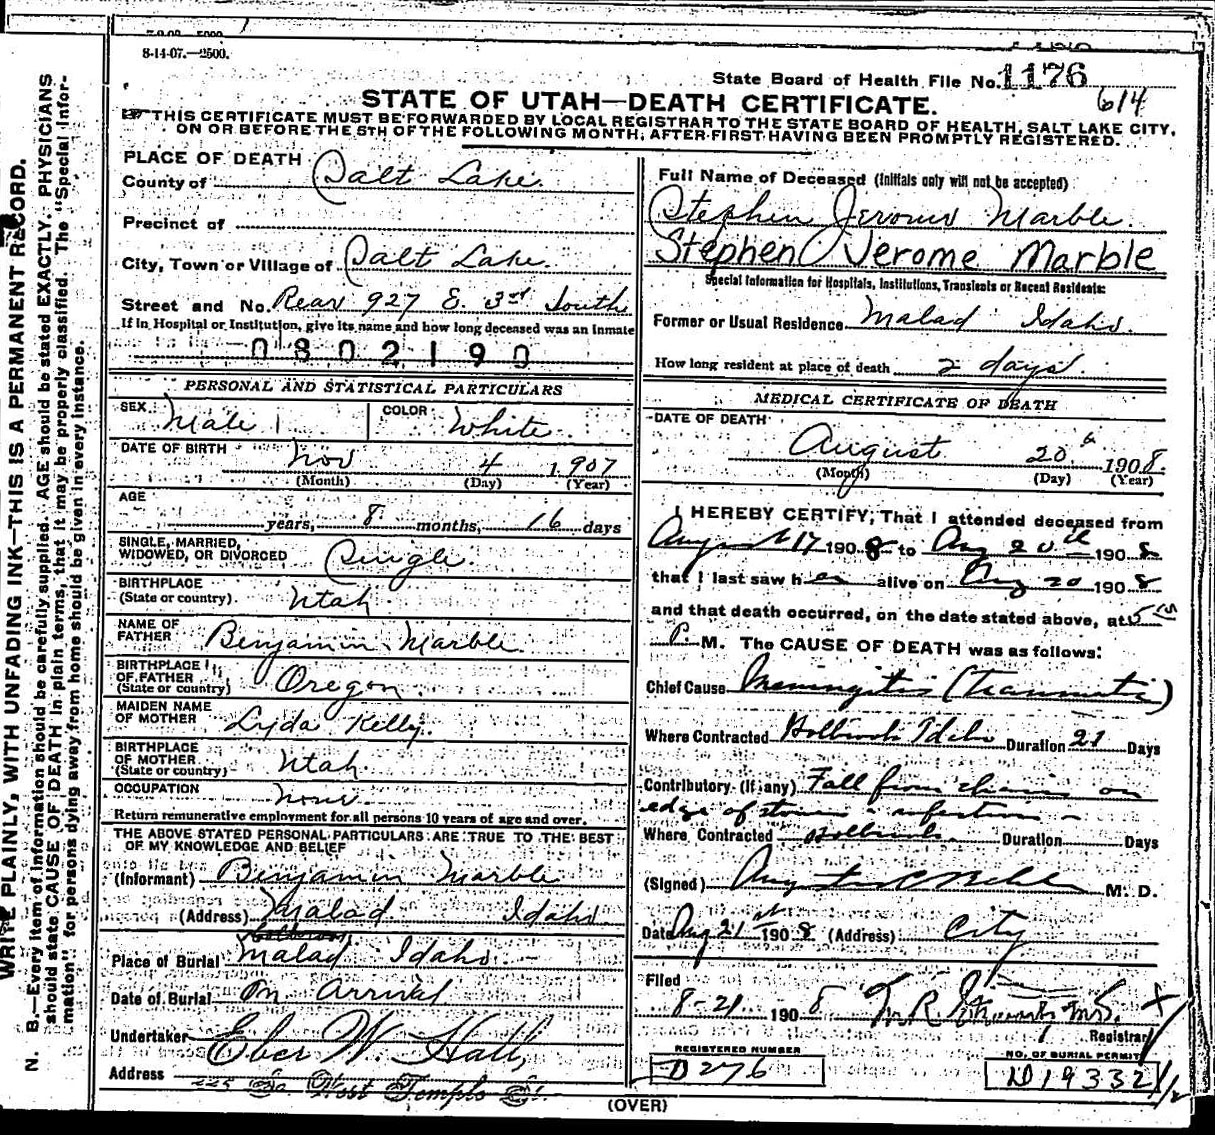 8-14-07.—2500.
State Board of Health File No. 1176
614
STATE OF UTAH—DEATH CERTIFICATE.
THIS CERTIFICATE MUST BE FORWARDED BY LOCAL REGISTRAR TO THE STATE BOARD OF HEALTH, SALT LAKE CITY,
ON OR BEFORE THE 5TH OF THE FOLLOWING MONTH, AFTER FIRST HAVING BEEN PROMPTLY REGISTERED.
WRITE PLAINLY, WITH UNFADING INK—THIS IS A PERMANENT RECORD.
N. B.—Every item of information should be carefully supplied. AGE should be stated EXACTLY. PHYSICIANS
should state CAUSE OF DEATH in plain terms, that it may be properly classified. The "Special Infor-
mation" for persons dying away from home should be given in every instance.
PLACE OF DEATH
County of Salt Lake
Precinct of
City, Town or Village of Salt Lake
Street and No. Rear 927 E. 3rd South
If in Hospital or Institution, give its name and how long deceased was an inmate
0802190
PERSONAL AND STATISTICAL PARTICULARS
SEX Male 1 COLOR White
DATE OF BIRTH Nov 4 1907
(Month) (Day) (Year)
AGE
years, 8 months, 16 days
SINGLE, MARRIED,
WIDOWED, OR DIVORCED Single
BIRTHPLACE
(State or country) Utah
NAME OF
FATHER Benjamin Marble
BIRTHPLACE
OF FATHER
(State or country) Oregon
MAIDEN NAME
OF MOTHER Lyda Kelly
BIRTHPLACE
OF MOTHER
(State or country) Utah
OCCUPATION none
Return remunerative employment for all persons 10 years of age and over.
THE ABOVE STATED PERSONAL PARTICULARS ARE TRUE TO THE BEST
OF MY KNOWLEDGE AND BELIEF
(Informant) Benjamin Marble
(Address) Malad Idaho
Holbrook
Place of Burial Malad Idaho
Date of Burial On Arrival
Undertaker Eber W. Hall
Address 225 So West Temple St.
Full Name of Deceased (Initials only will not be accepted)
Stephen Jerome Marble
Stephen Jerome Marble
Special Information for Hospitals, Institutions, Transients or Recent Residents:
Former or Usual Residence Malad Idaho
How long resident at place of death 2 days
MEDICAL CERTIFICATE OF DEATH
DATE OF DEATH
August 20 1908.
(Month) (Day) (Year)
I HEREBY CERTIFY, That I attended deceased from
August 17 1908 to Aug 20th 1908
that I last saw h alive on Aug 20 1908
and that death occurred, on the date stated above, at 5 15
P. M. The CAUSE OF DEATH was as follows:
Chief Cause Meningitis (traumatic)
Where Contracted Holbrook Idaho Duration 21 Days
Contributory (if any) Fall from chair on
edge of stove infection
Where Contracted Holbrook Duration Days
(Signed) M. D.
Date Aug 21st 1908 (Address) City
Filed
8-21 1908
Registrar
REGISTERED NUMBER
D 276
NO. OF BURIAL PERMIT
D 19332
(OVER)